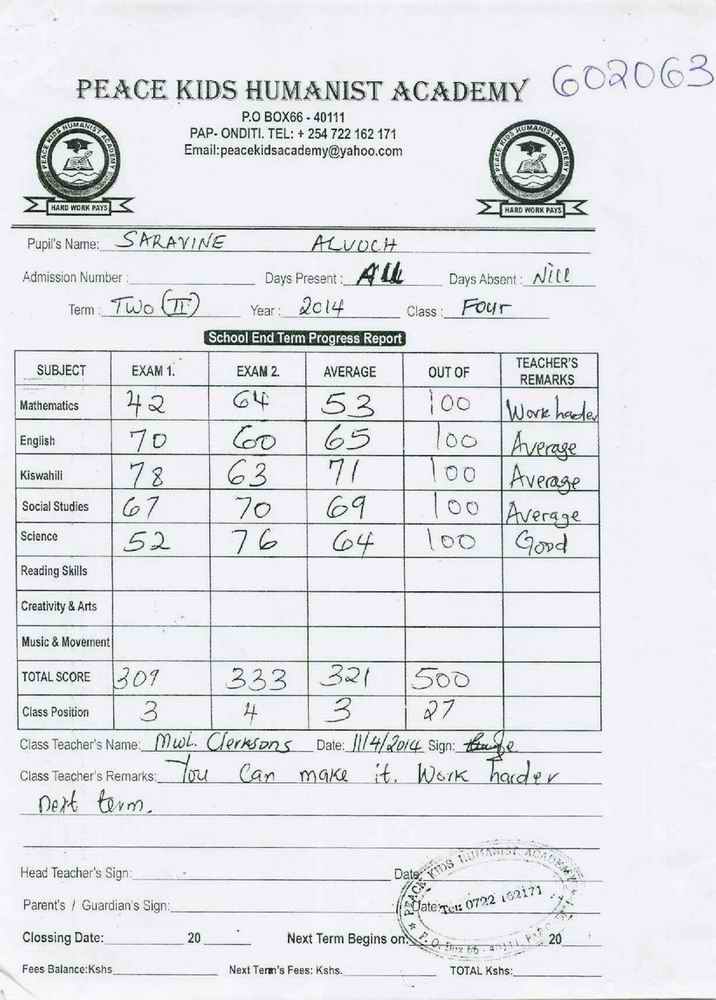 602063
PEACE KIDS HUMANIST ACADEMY
P.O BOX66 - 40111
PAP- ONDITI. TEL: + 254 722 162 171
Email:peacekidsacademy@yahoo.com
PEACE KIDS HUMANIST ACADEMY
HARD WORK PAYS
PEACE KIDS HUMANIST ACADEMY
HARD WORK PAYS
Pupil's Name: SARAVINE ALUOCH
Admission Number : Days Present : All Days Absent : Nill
Term : Two (II) Year : 2014 Class : Four
School End Term Progress Report
SUBJECT EXAM 1. EXAM 2. AVERAGE OUT OF TEACHER'S REMARKS
Mathematics 42 64 53 100 Work harder
English 70 60 65 100 Average
Kiswahili 78 63 71 100 Average
Social Studies 67 70 69 100 Average
Science 52 76 64 100 Good
Reading Skills
Creativity & Arts
Music & Movement
TOTAL SCORE 309 333 321 500
Class Position 3 4 3 27
Class Teacher's Name: Mwl. Clerksons Date: 11/4/2014 Sign:
Class Teacher's Remarks: You Can make it. Work harder
next term.
Head Teacher's Sign: Date
Parent's / Guardian's Sign: Date
PEACE KIDS HUMANIST ACADEMY
Tel: 0722 162171
P.O. Box 66 - 40111
Clossing Date: 20 Next Term Begins on: 20
Fees Balance:Kshs Next Term's Fees: Kshs. TOTAL Kshs: